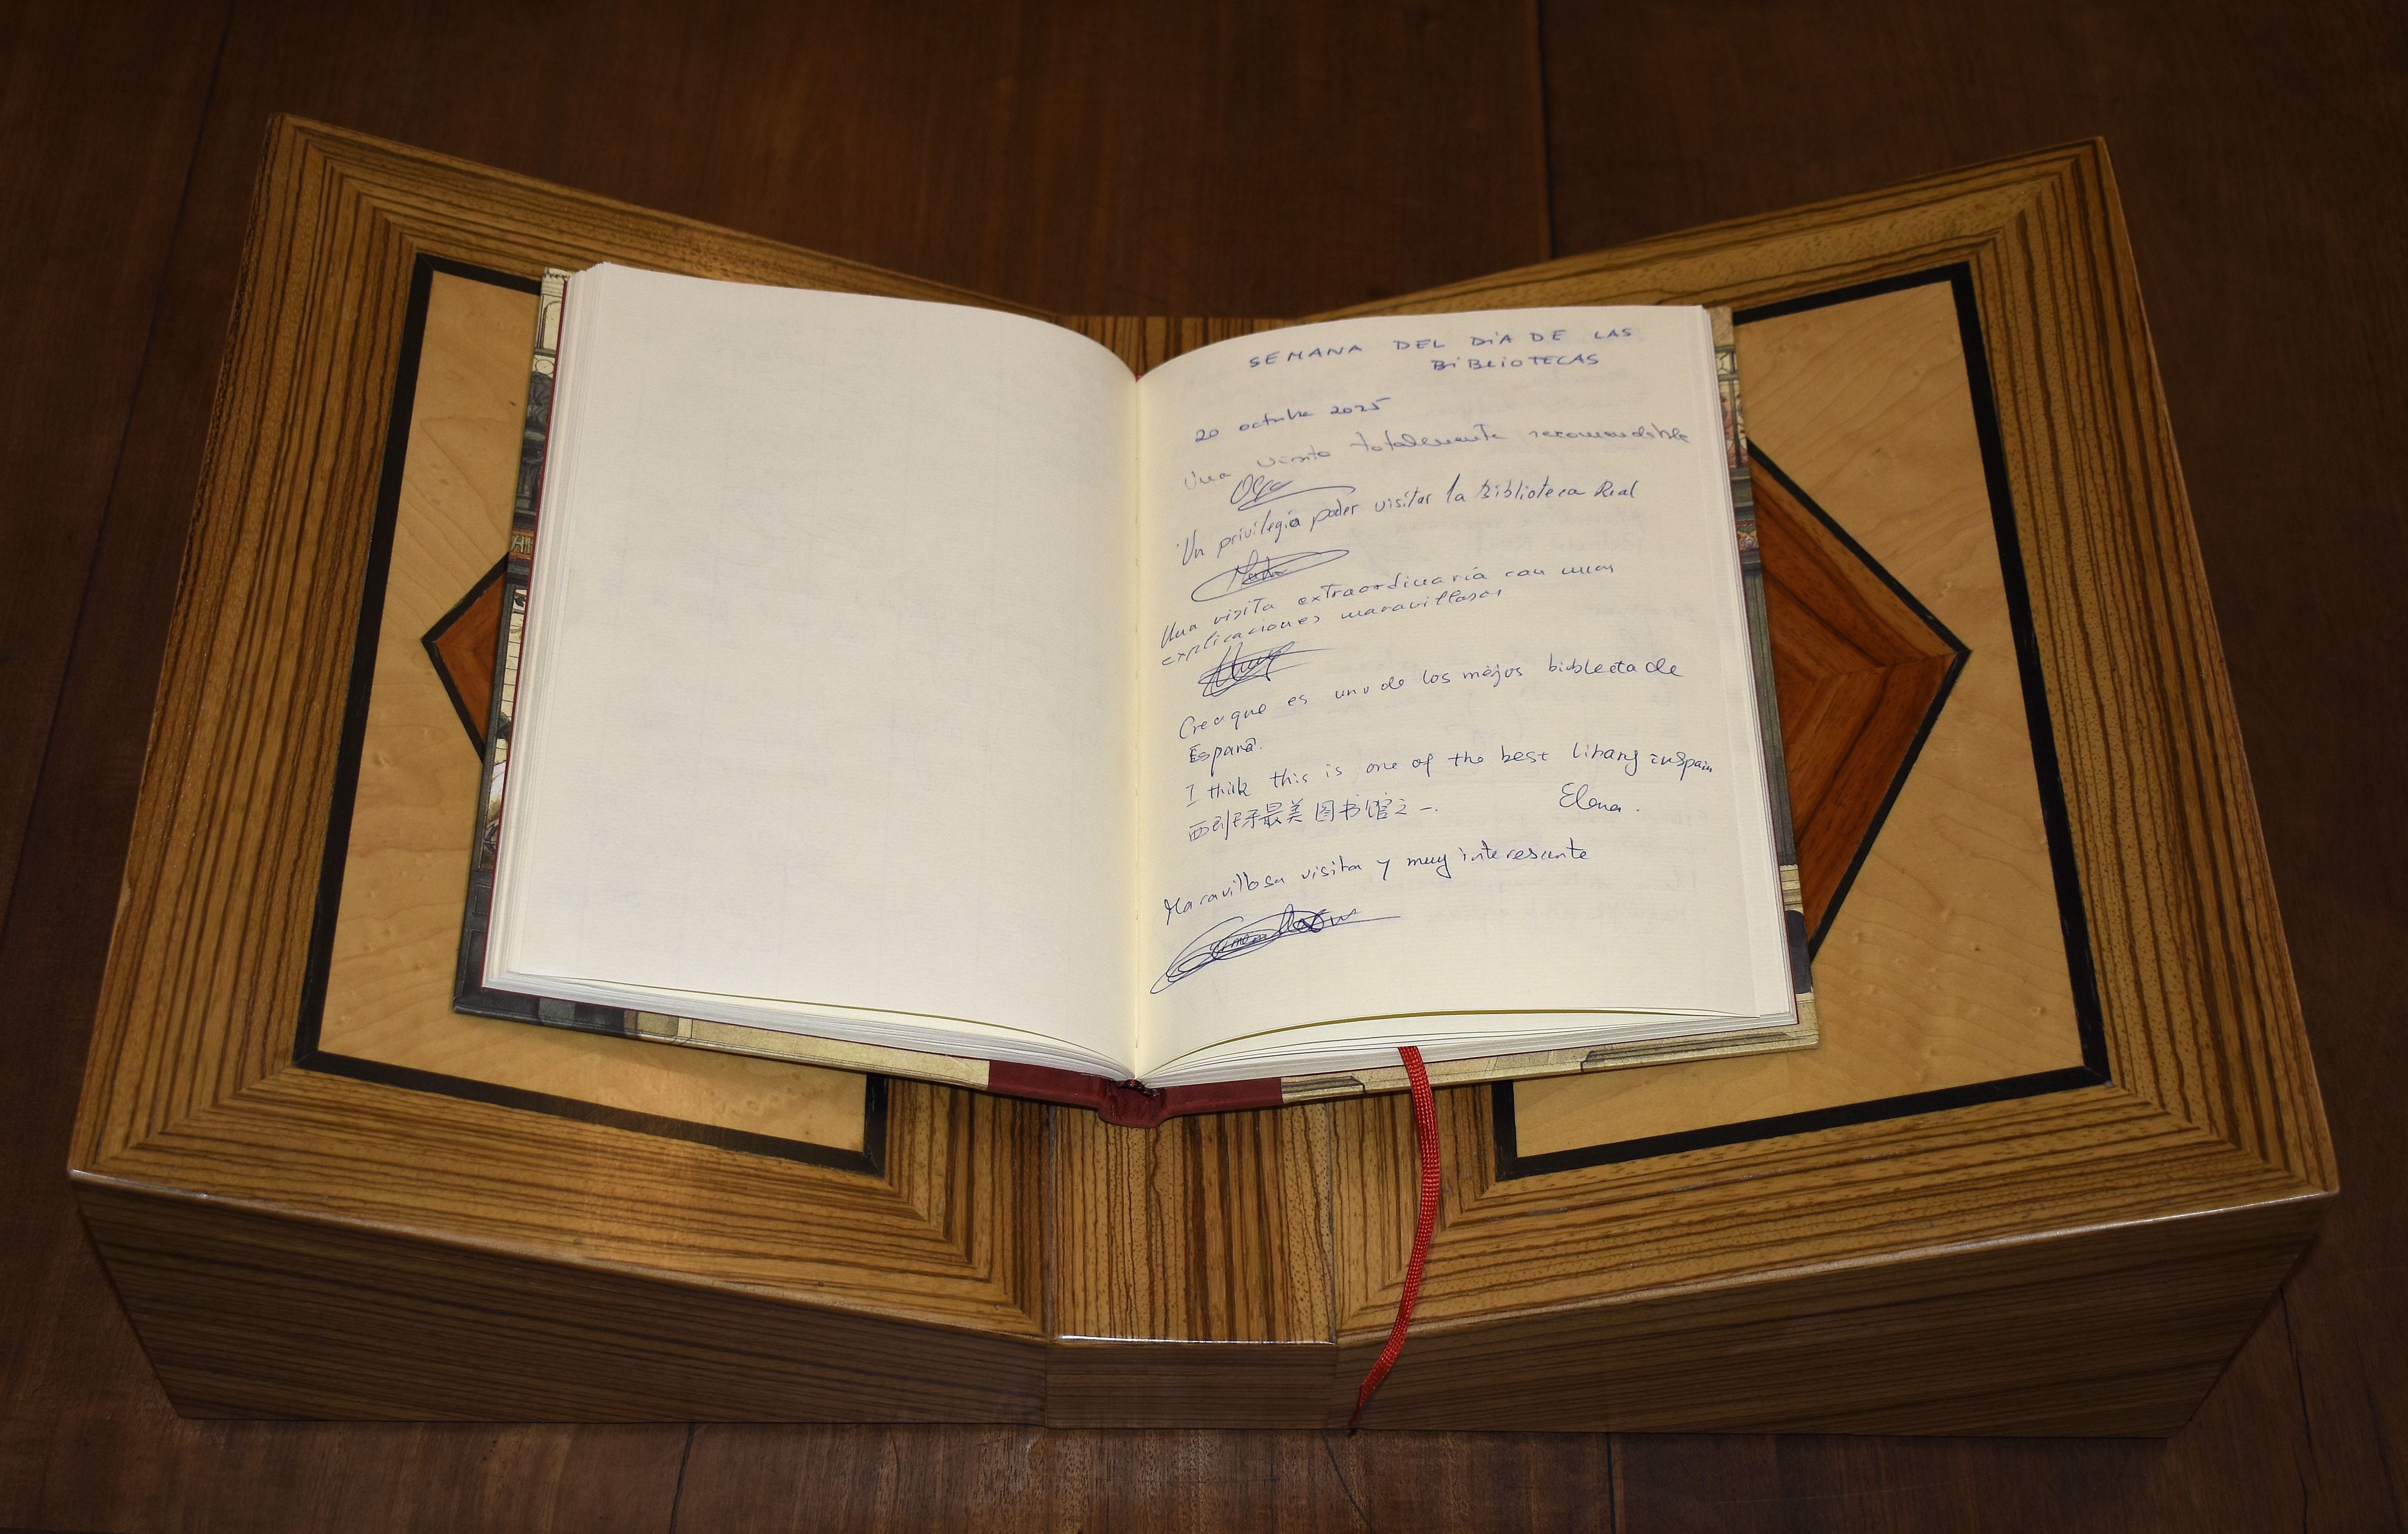 SEMANA DEL DÍA DE LAS
BIBLIOTECAS
20 octubre 2025
Una visita totalmente recomendable
Olga
Un privilegio poder visitar la Biblioteca Real
Una visita extraordinaria con unas
explicaciones maravillosas
Creo que es uno de los mejos bioblecta de
España.
I think this is one of the best libary in Spain
西班牙最美图书馆之一. Elena.
Maravillosa visita y muy interesante